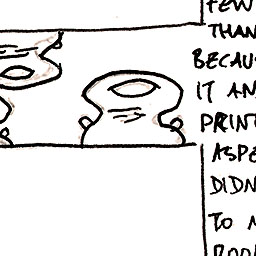 FEW
THAN
BECAU
IT AN
PRINT
ASPE
DIDN
TO M